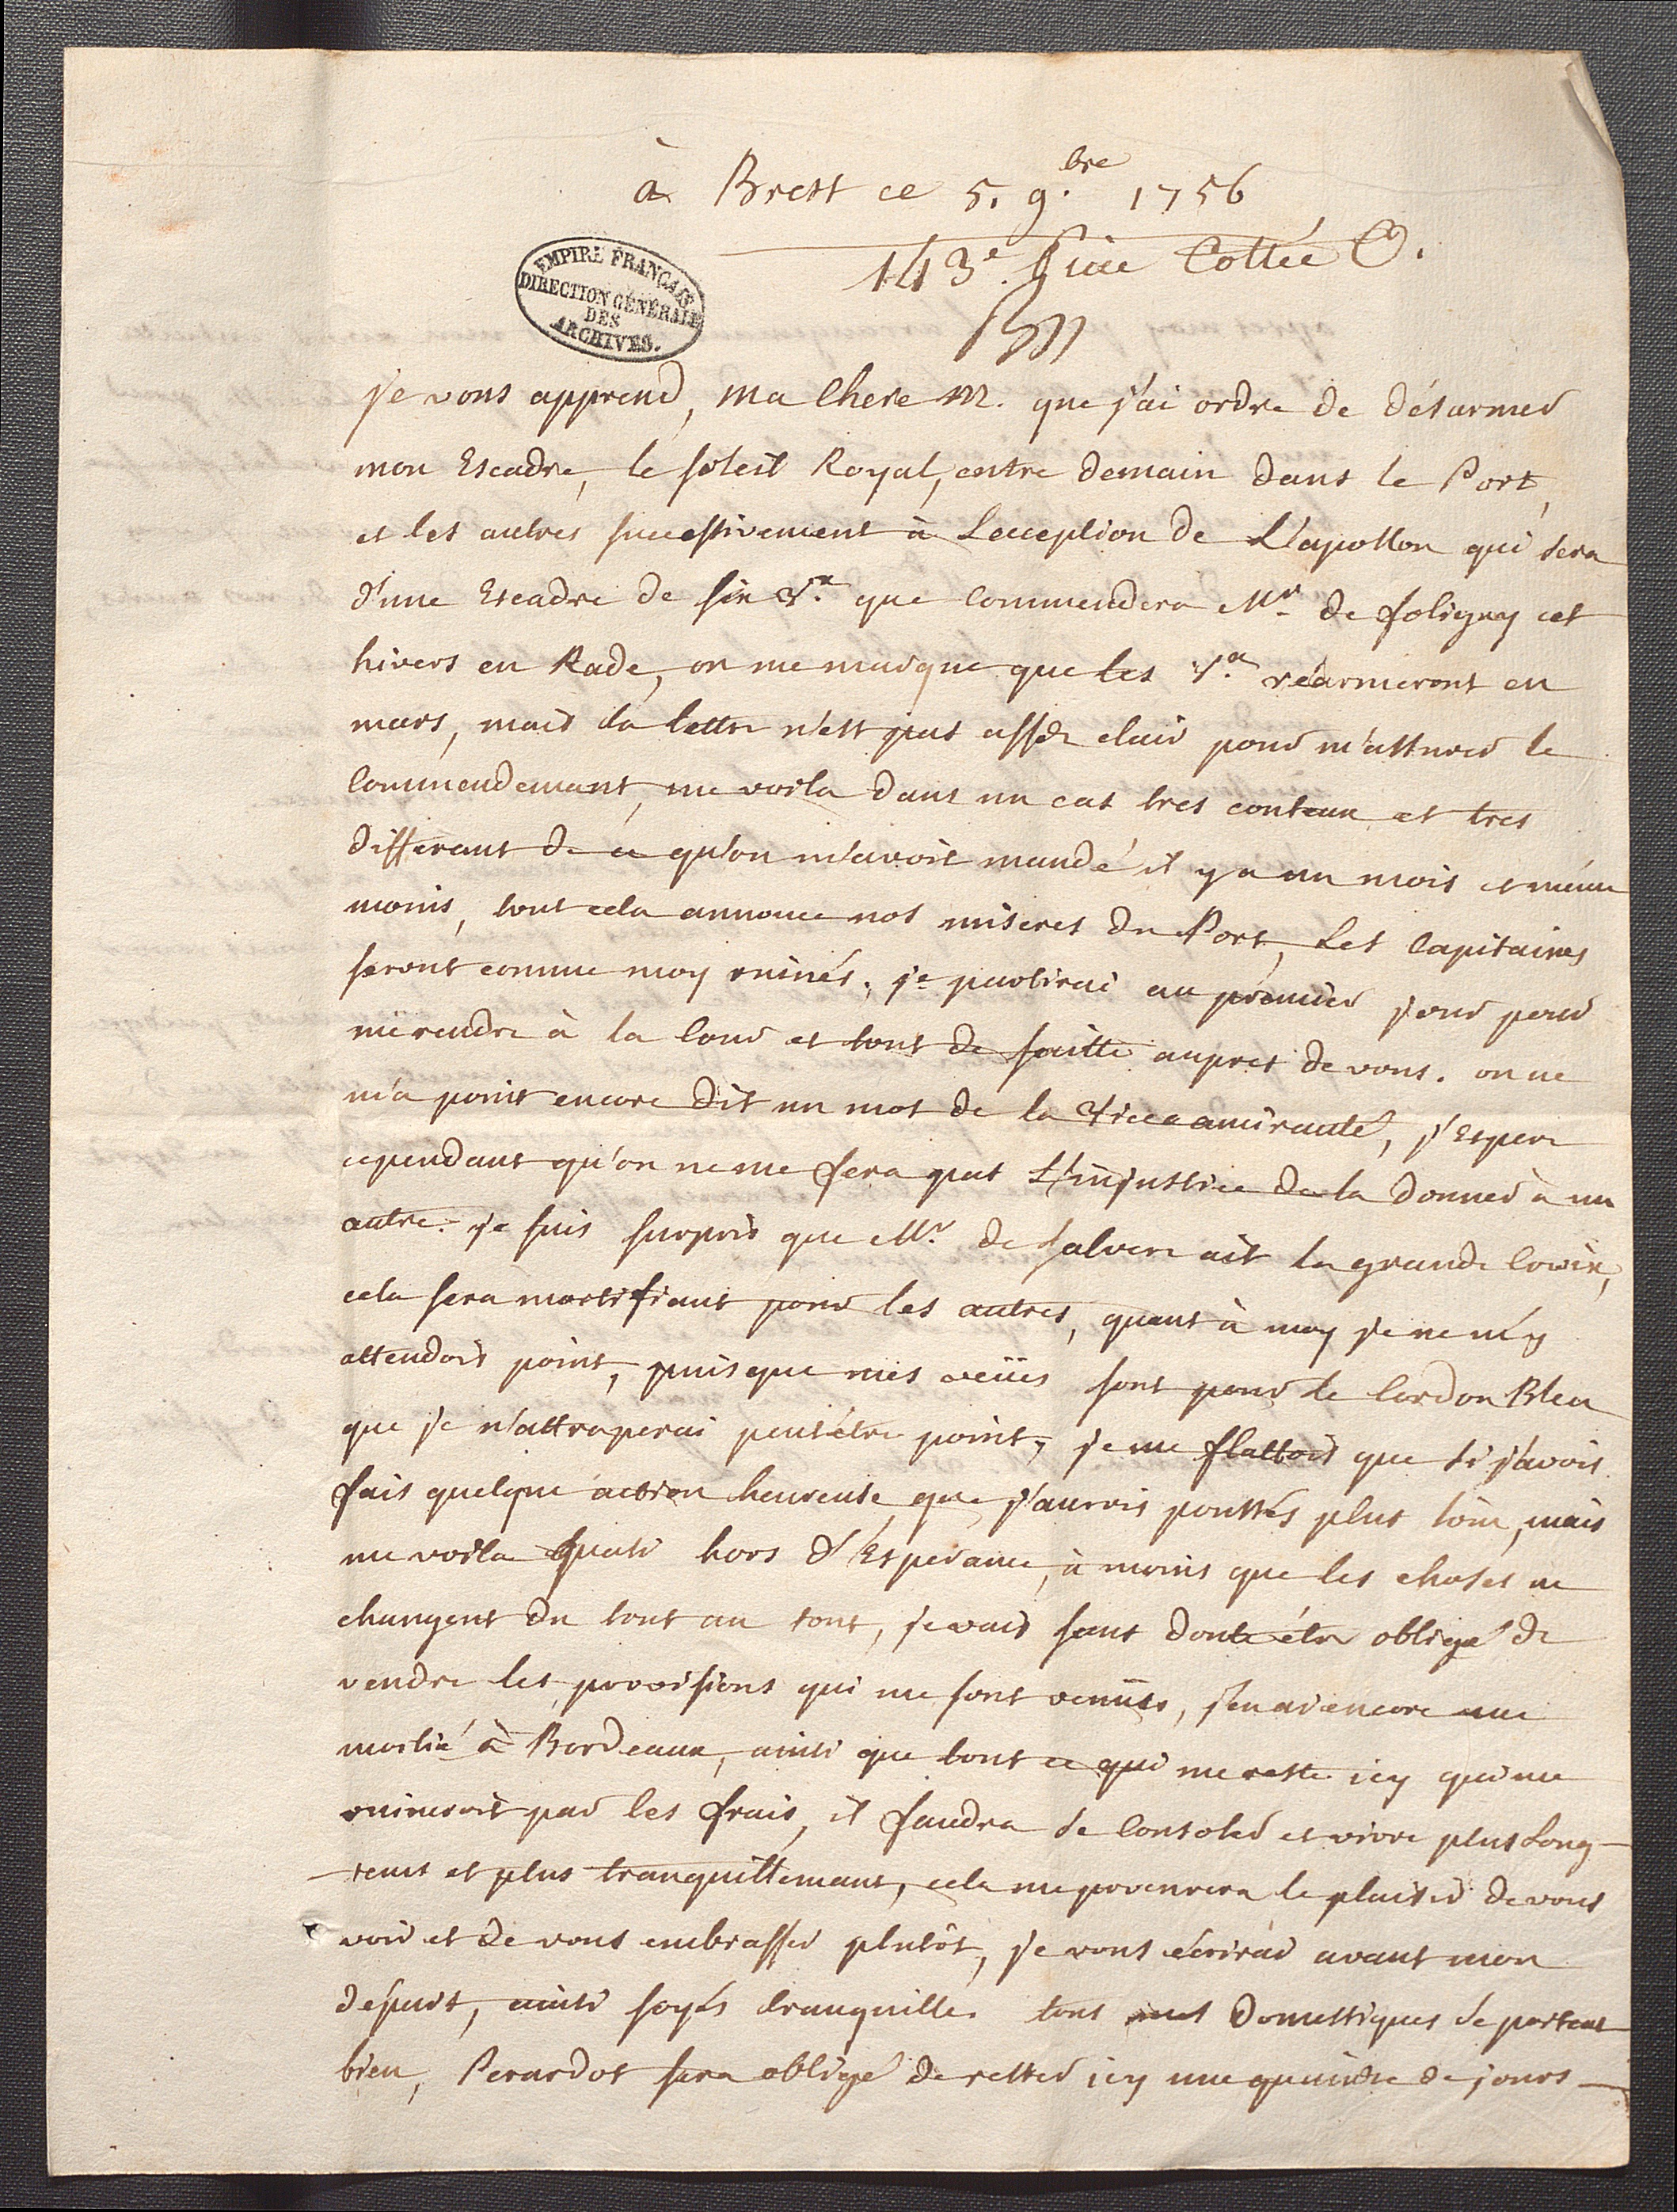 à Brest ce 5. 9.bre 1756
143e. Piece Cottée O.
EMPIRE FRANÇAIS
DIRECTION GÉNÉRALE
DES
ARCHIVES.
je vous apprend, ma Chere M. que j'ai ordre de désarmer
mon Escadre, le soleil Royal, entre demain dans le Port,
et les autres successivement à Lecception de L'apollon qui sera
d'une Escadre de six Vx. que Commendera Mr. de foligny cet
hivers en Rade, on me marque que les Vx. réarmeront en
mars, mais la lettre n'est pas assés clair pour m'assurer le
Commendemant, me voila dans un cas tres conteux et tres
differant de ce qu'on m'avoit mandé il y a un mois et méme
moins, tout cela annonce nos miseres du Port, Les Capitaines
seront comme moy ruinés. je partirai au prémier jour pour
me rendre à la Cour et tout de suitte aupres de vous. on ne
m'a point encore dit un mot de la Vice amirauté, j'Espere
cependant qu'on ne me fera pas L'injustice de la donner à un
autre. je suis surpris que Mr. de Salvert ait la grande Croix,
cela sera mortifiant pour les autres, quant à moy je ne m'y
attendois point, puisque mes veües sont pour le Cordon Bleu
que je n'attraperai peutétre point, je me flattois que si j'avois
fais quelque action heureuse que j'aurois poussés plus loin, mais
me voila quasi hors d'Esperance, à moins que les choses ne
changent du tout au tout, je vais sans doute étre obligé de
vendre les provisions qui me sont venües, j'en ai encore une
moitié à Bordeaux, ainsi que tout ce qui me reste icy qui me
ruineroit par les frais, il faudra se Consoler et vivre plus Long-
-tems et plus tranquillemant, cela me procurera le plaisir de vous
voir et de vous embrasser plutôt, je vous écrirai avant mon
départ, ainsi soyés tranquille. tous mes Domestiques se portent
bien, Perardot sera obligé de rester icy une quinzne de jours